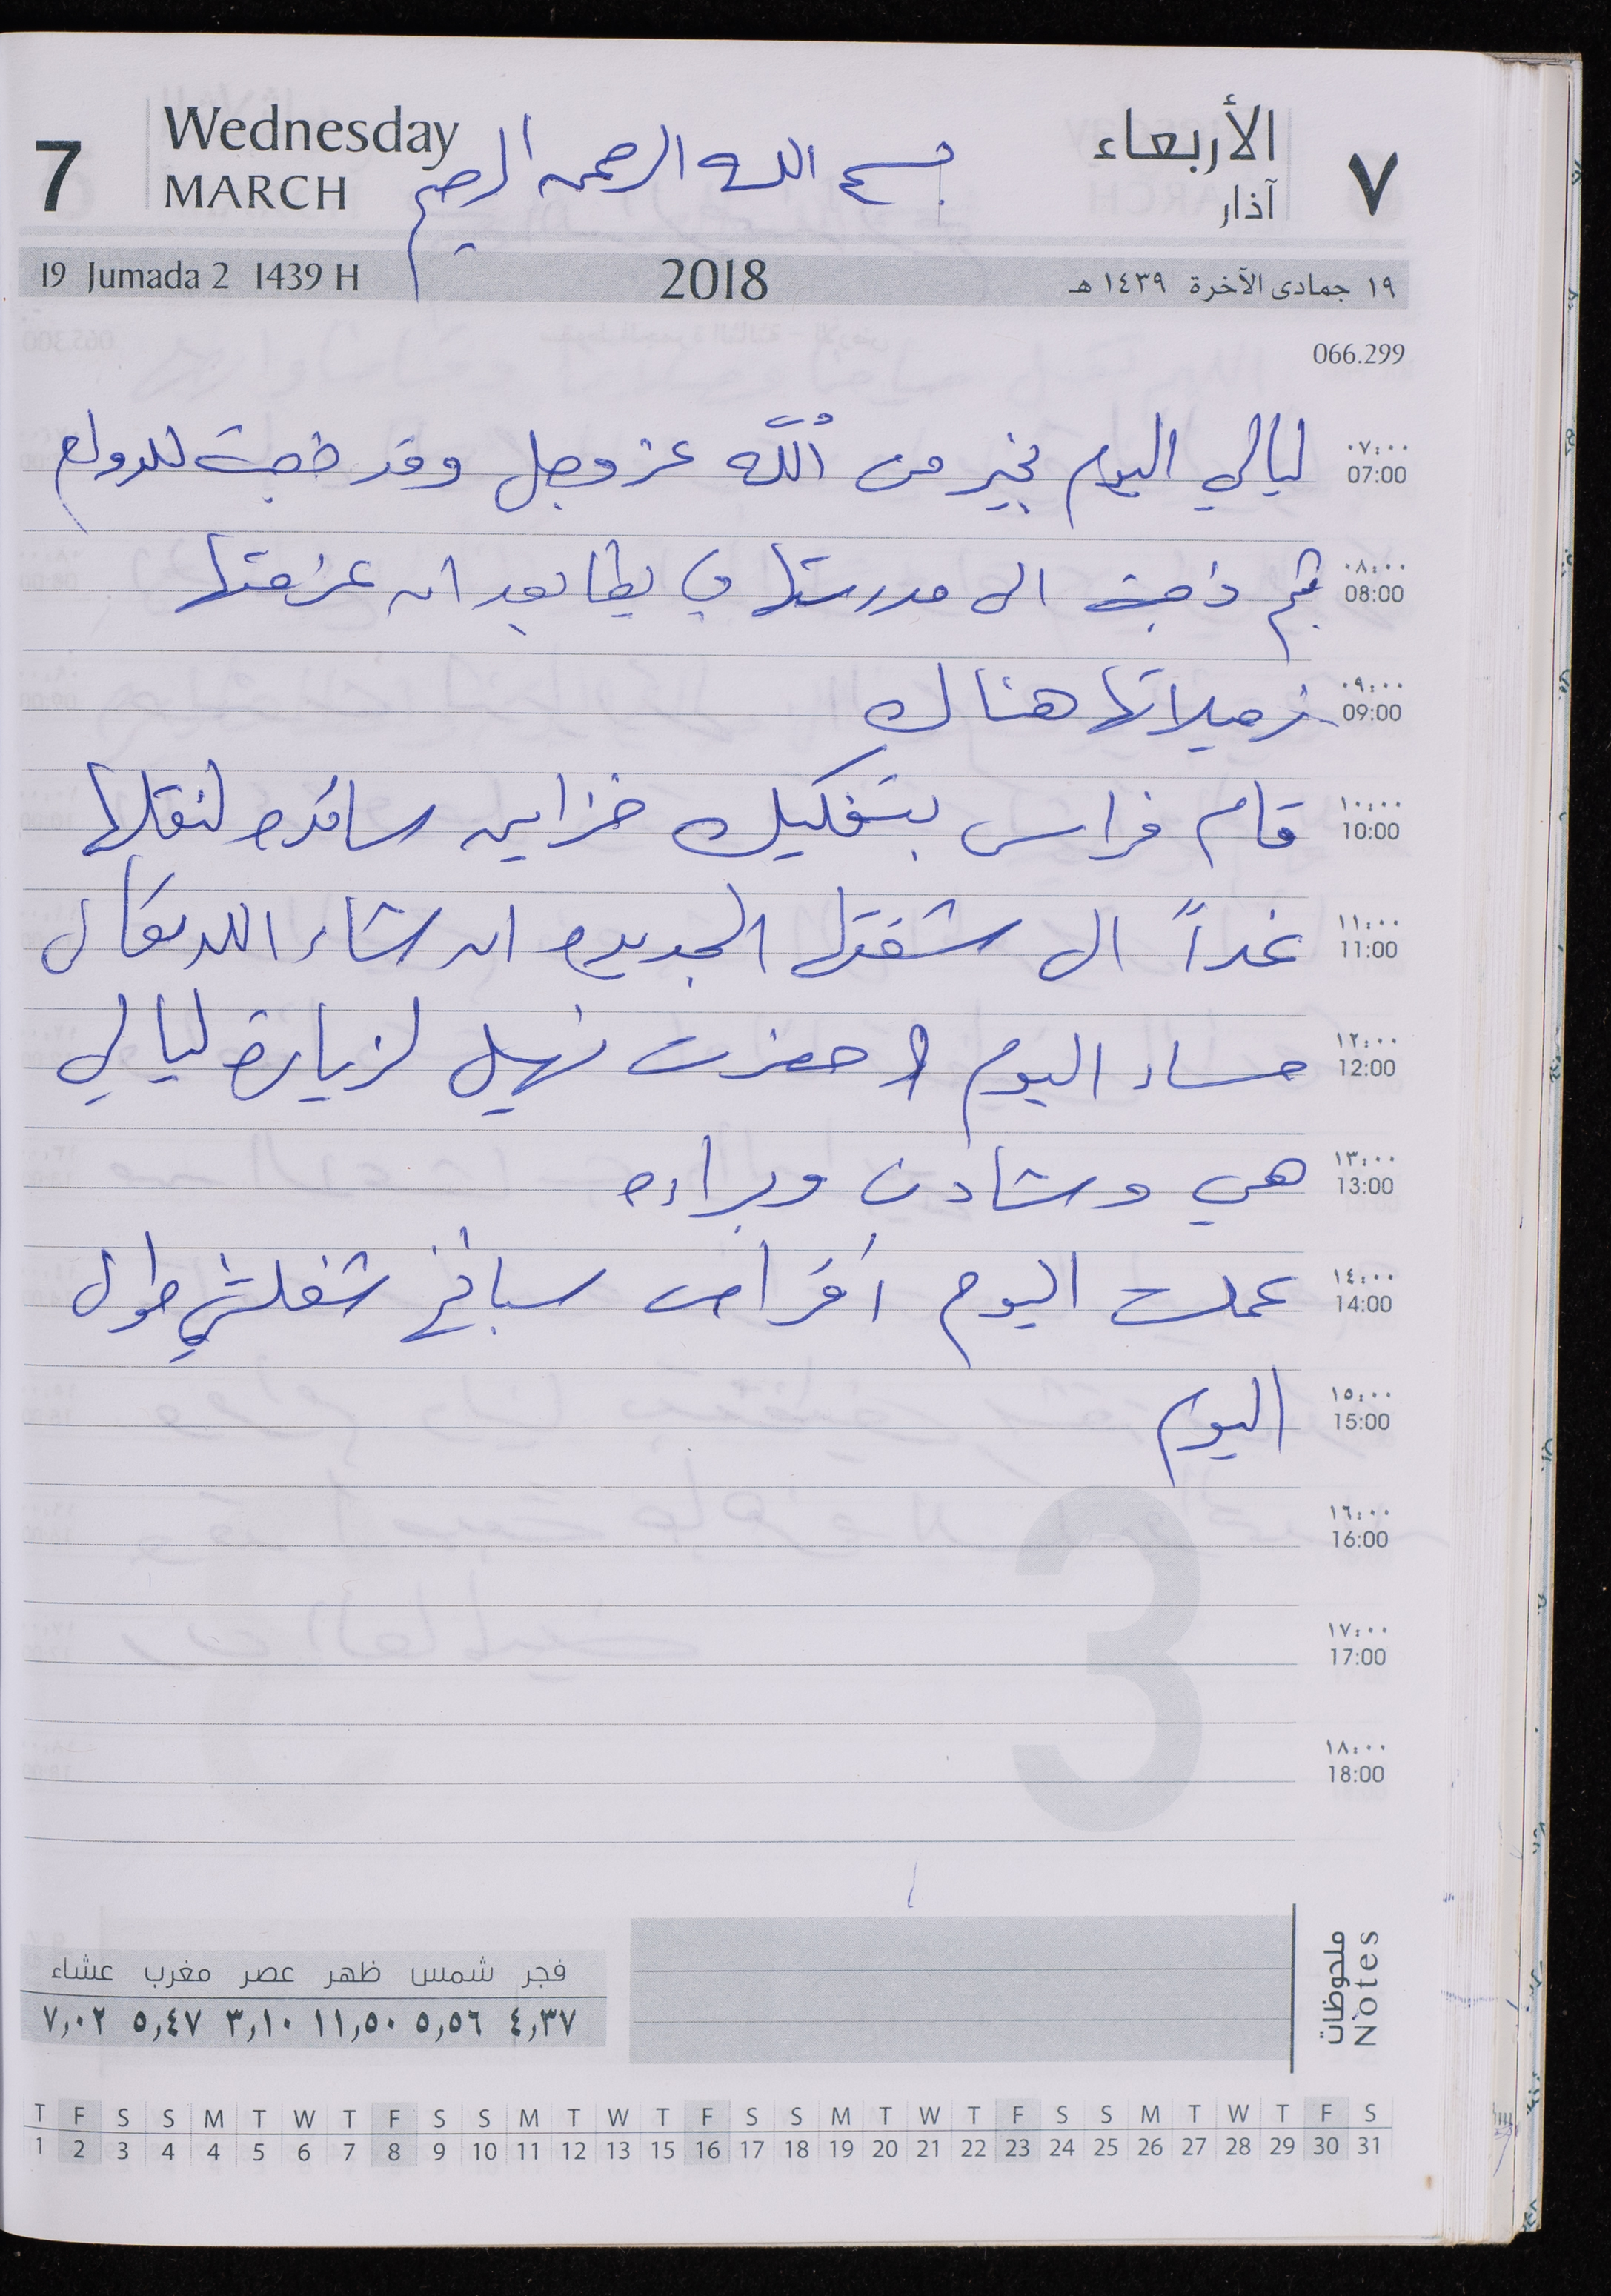 7 Wednesday MARCH الأربعاء آذار ٧
بسم الله الرحمن الرحيم
19 Jumada 2 1439 H 2018 ١٩ جمادى الآخرة ١٤٣٩ هـ
066.299
٠٧:٠٠ 07:00 ليالي اليوم بخير من الله عز وجل وقد ذهبت للدوام
٠٨:٠٠ 08:00 ثم ذهبت الى مدرستها في يطا بعد ان عزمتها
٠٩:٠٠ 09:00 زميلاتها هناك
١٠:٠٠ 10:00 قام فراس بتفكيك خزاين سائده لنقلها
١١:٠٠ 11:00 غداً الى شقتها الجديده ان شاء الله تعالى
١٢:٠٠ 12:00 مساء اليوم حضرت نهيل لزيارة ليالي
١٣:٠٠ 13:00 هي وشادن وبراءه
١٤:٠٠ 14:00 عملت اليوم أقراص سبانخ شغلتني طول
١٥:٠٠ 15:00 اليوم
١٦:٠٠ 16:00
١٧:٠٠ 17:00
١٨:٠٠ 18:00
ملحوظات Notes
فجر شمس ظهر عصر مغرب عشاء
٤,٣٧ ٥,٥٦ ١١,٥٠ ٣,١٠ ٥,٤٧ ٧,٠٢
T F S S M T W T F S S M T W T F S S M T W T F S S M T W T F S
1 2 3 4 4 5 6 7 8 9 10 11 12 13 15 16 17 18 19 20 21 22 23 24 25 26 27 28 29 30 31
3